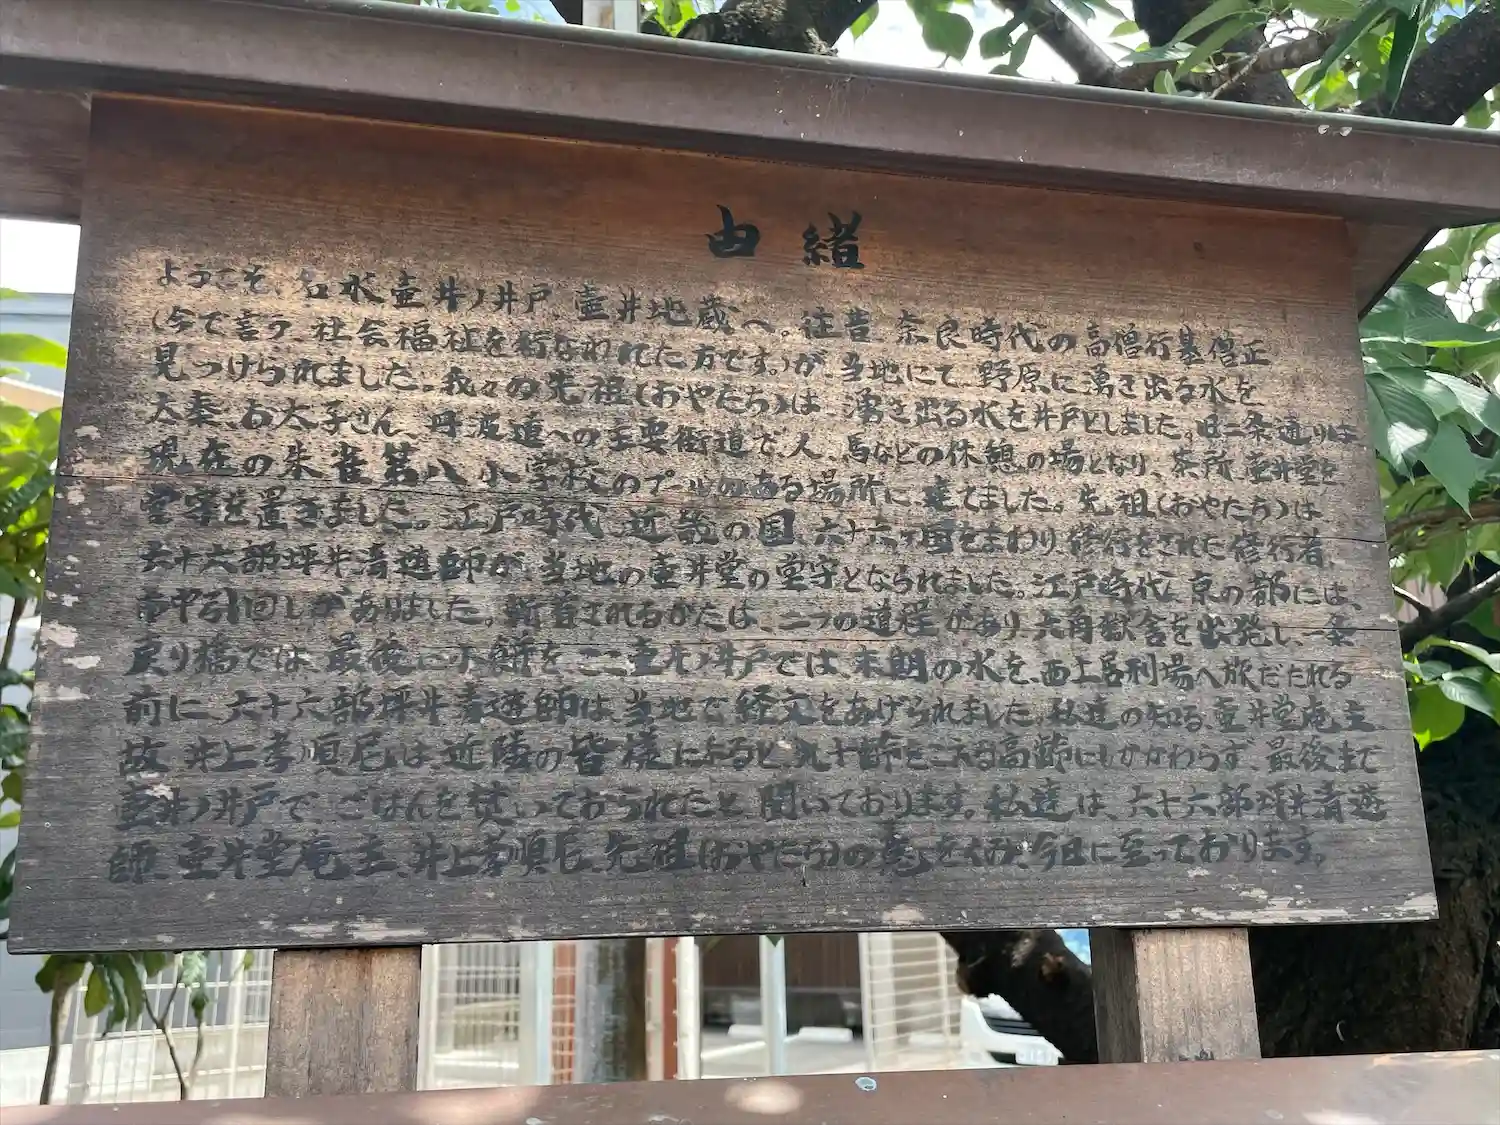 由緒
ようこそ、名水壷井ノ井戸、壷井地蔵へ。往昔 奈良時代の高僧行基僧正
(今で言う、社会福祉を行なわれた方です。)が、当地にて、野原に湧き出る水を
見つけられました。我々の先祖(おやたち)は、湧き出る水を井戸としました。旧二条通りは
太秦、お太子さん、丹波道への主要街道で、人、馬などの休憩の場となり、茶所、壷井堂を
現在の朱雀第八小学校のプールのある場所に建てました。先祖(おやたち)は
堂守を置きました。江戸時代、近畿の国、六十六ヶ国をまわり、修行をされた修行者、
六十六部坪井清遊師が、当地の壷井堂の堂守となられました。江戸時代、京の都には、
市中引回しがありました。斬首されるかたは、二つの道程があり、六角獄舎を出発し、一条
戻り橋では、最後に小餅を、ここ壷井ノ井戸では、末期の水を、西土居刑場へ旅だたれる
前に、六十六部坪井清遊師は、当地で、経文をあげられました。私達の知る、壷井堂庵主
故、井上孝順尼は、近隣の皆様によると、九十齢をこえる高齢にもかかわらず、最後まで
壷井ノ井戸で、ごはんを焚いておられたと、聞いております。私達は、六十六部坪井清遊
師、壷井堂庵主、井上孝順尼、先祖(おやたち)の意をくみ、今日に至っております。